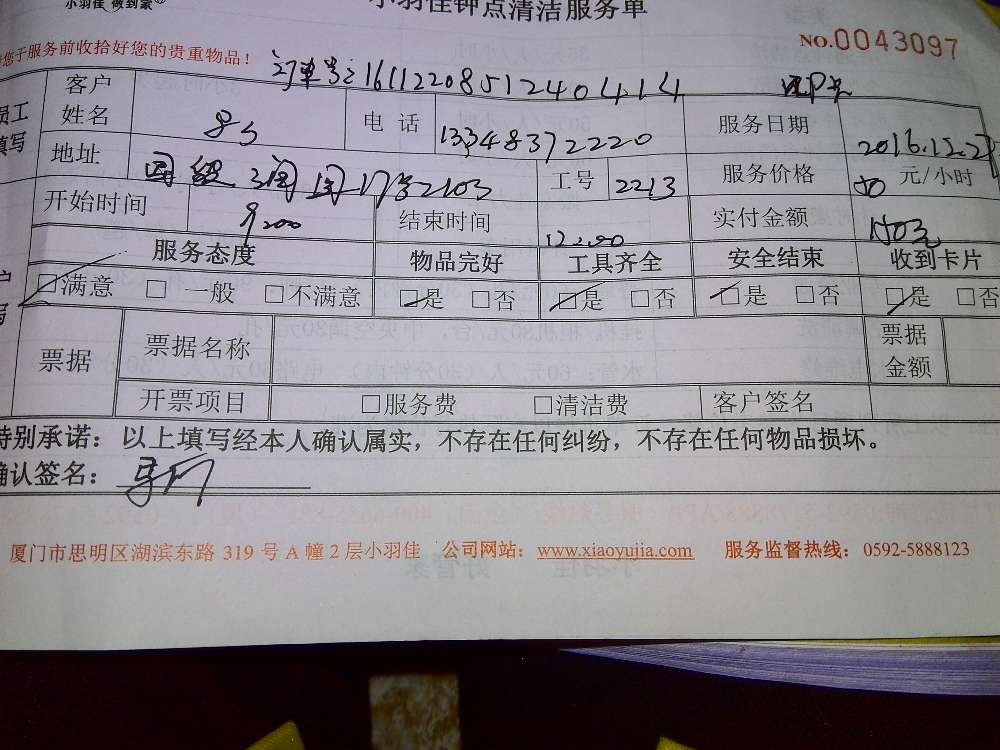 小羽佳 做到家®
小羽佳钟点清洁服务单
您于服务前收拾好您的贵重物品！ NO.0043097
订单号:16112208512404414 VIP卡
员工填写 客户姓名 电话 13348372220 服务日期 2016.12.2
地址 国贸 阳 17号2103 工号 2213 服务价格 50 元/小时
开始时间 9:00 结束时间 12:00 实付金额 150元
服务态度 物品完好 工具齐全 安全结束 收到卡片
□满意 □ 一般 □不满意 □是 □否 □是 □否 □是 □否 □是 □否
票据 票据名称 票据金额
开票项目 □服务费 □清洁费 客户签名
特别承诺：以上填写经本人确认属实，不存在任何纠纷，不存在任何物品损坏。
确认签名：
厦门市思明区湖滨东路 319 号 A 幢 2 层小羽佳 公司网站：www.xiaoyujia.com 服务监督热线：0592-5888123